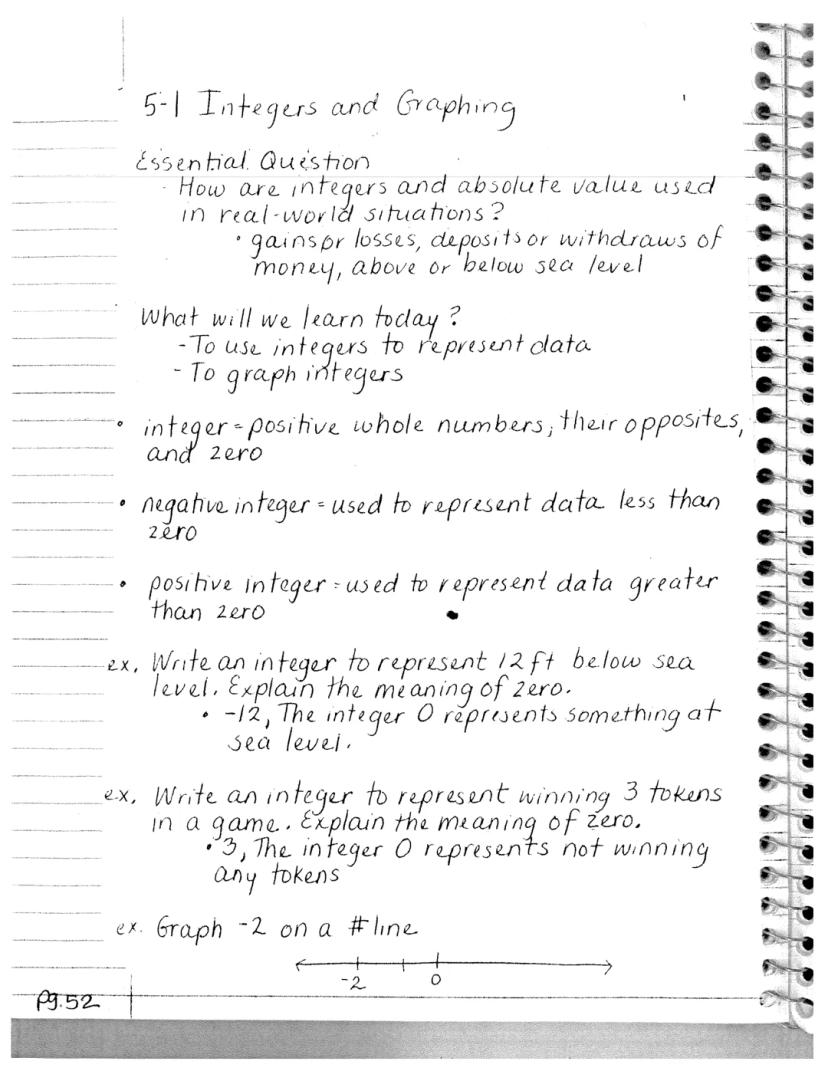 5-1 Integers and Graphing
Essential Question
- How are integers and absolute value used
in real-world situations?
• gains or losses, deposits or withdraws of
money, above or below sea level
What will we learn today?
- To use integers to represent data
- To graph integers
• integer = positive whole numbers, their opposites,
and zero
• negative integer = used to represent data less than
zero
• positive integer = used to represent data greater
than zero
ex. Write an integer to represent 12 ft below sea
level. Explain the meaning of zero.
• -12, The integer 0 represents something at
sea level.
ex. Write an integer to represent winning 3 tokens
in a game. Explain the meaning of zero.
• 3, The integer 0 represents not winning
any tokens
ex. Graph -2 on a # line
-2 0
pg.52